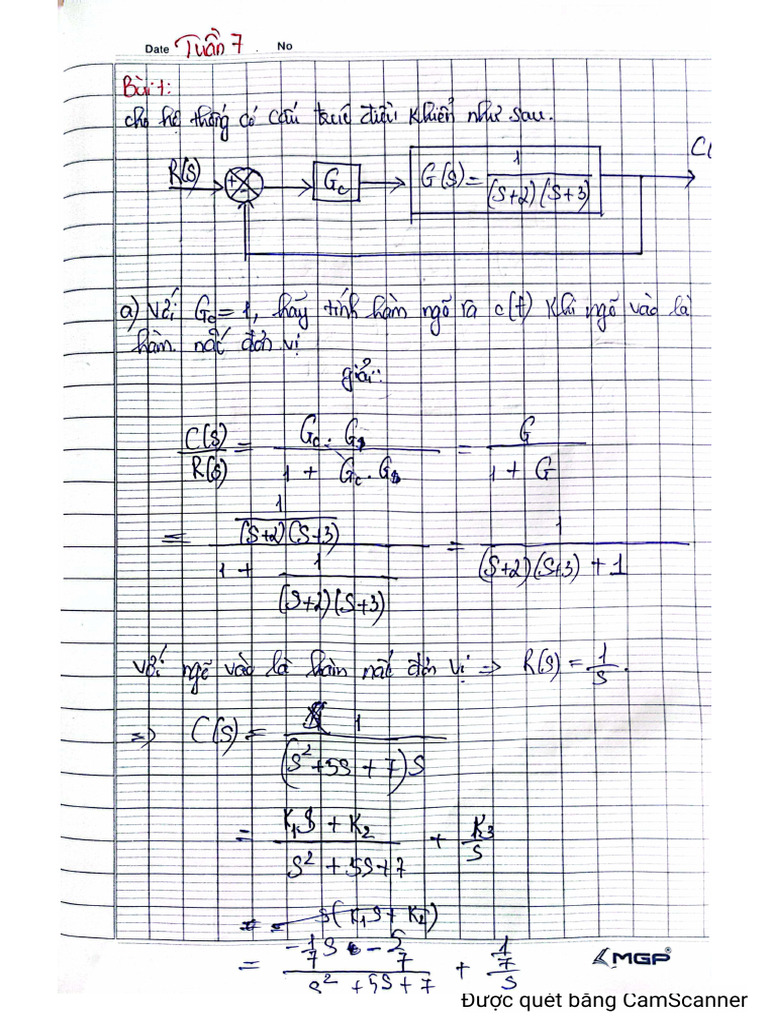 Date Tuần 7. No
Bài 1:
cho hệ thống có cấu trúc điều khiển như sau.
R(s) + - Gc G(s) = 1/((s+2)(s+3)) C(
a) Với Gc = 1, hãy tính hàm ngõ ra c(t) khi ngõ vào là
hàm nấc đơn vị
giải:
C(s)/R(s) = Gc.G/(1 + Gc.G) = G/(1 + G)
= (1/((s+2)(s+3)))/(1 + 1/((s+2)(s+3))) = 1/((s+2)(s+3) + 1)
với ngõ vào là hàm nấc đơn vị => R(s) = 1/s.
=> C(s) = 1/((s²+5s+7)s)
= (K₁s + K₂)/(s² + 5s + 7) + K₃/s
= s(K₁s + K₂)
= (-1/7 s - 5/7)/(s² + 5s + 7) + (1/7)/s
MGP
Được quét bằng CamScanner